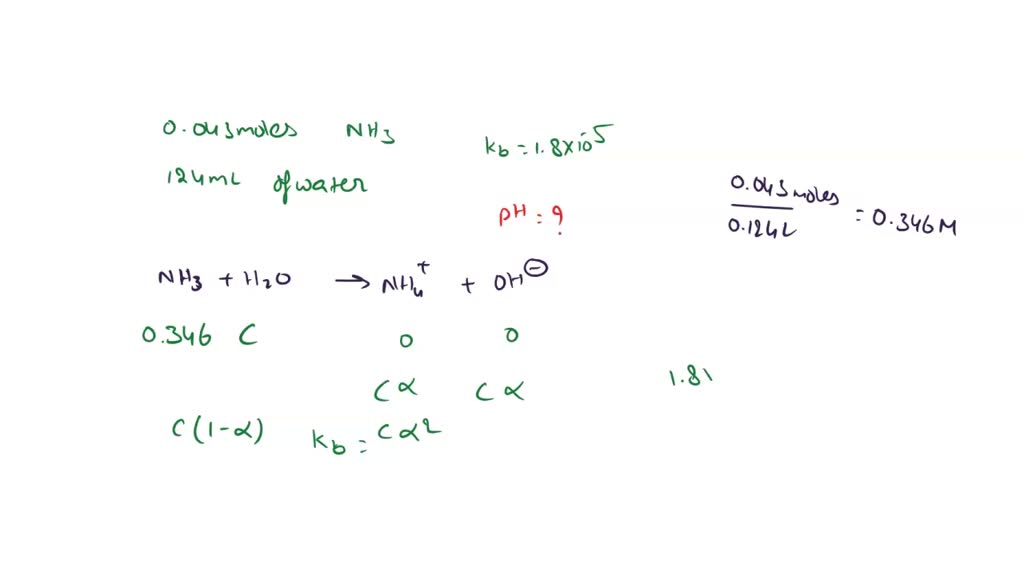 0.043moles NH3
Kb = 1.8×10^-5
124mL of water
pH = ?
0.043moles / 0.124L = 0.346M
NH3 + H2O → NH4^+ + OH^⊖
0.346 C 0 0
Cα Cα
1.81
C(1-α)
Kb = Cα2